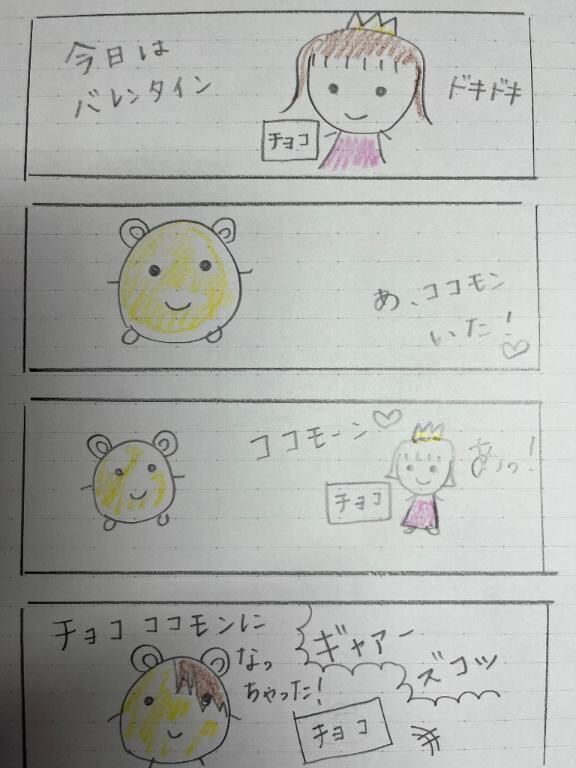 今日は
バレンタイン
ドキドキ
チョコ
あ、ココモン
いた!
ココモーン
あっ!
チョコ
チョコ ココモンに
なっ
ちゃった!
ギャアー
ズコッ
チョコ